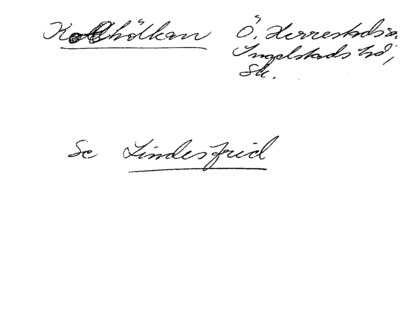 Kollhölkan Ö. Herrestads s.
Ingelstads hd,
Sk.
Se Lindesfrid